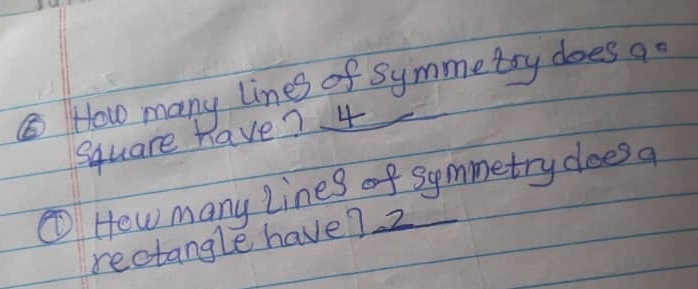 ⑥ How many lines of symmetry does a
square have? 4
⑦ How many lines of symmetry does a
rectangle have? 2